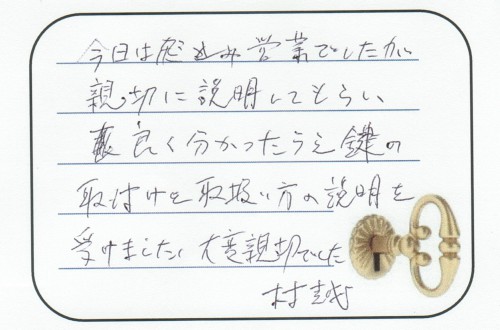 今日は飛込み営業でしたが
親切に説明してもらい
良く分かったうえ鍵の
取付けと取扱い方の説明を
受けました。大変親切でした
村越